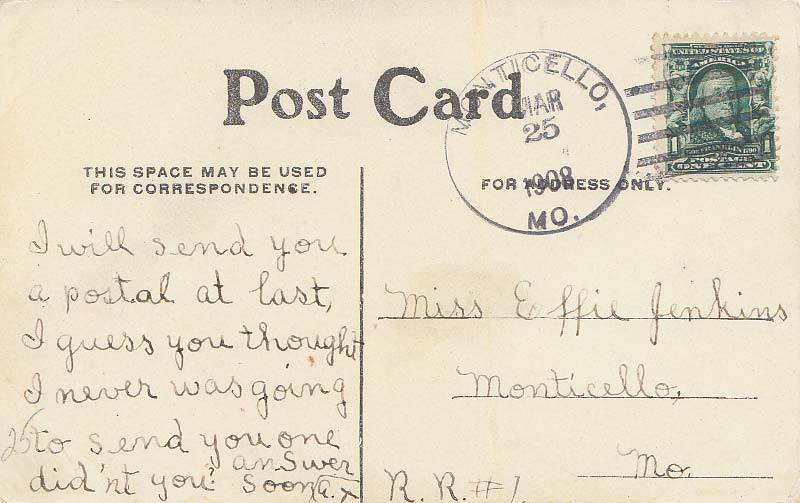 Post Card
MONTICELLO,
MAR
25
1908
MO.
UNITED STATES OF
AMERICA
FRANKLIN
POSTAGE
1 ONE CENT 1
THIS SPACE MAY BE USED
FOR CORRESPONDENCE.
FOR ADDRESS ONLY.
I will send you
a postal at last,
I guess you thought
I never was going
to send you one
did'nt you?
answer
soon
Miss Effie Jenkins
Monticello,
Mo.
R. R. # 1